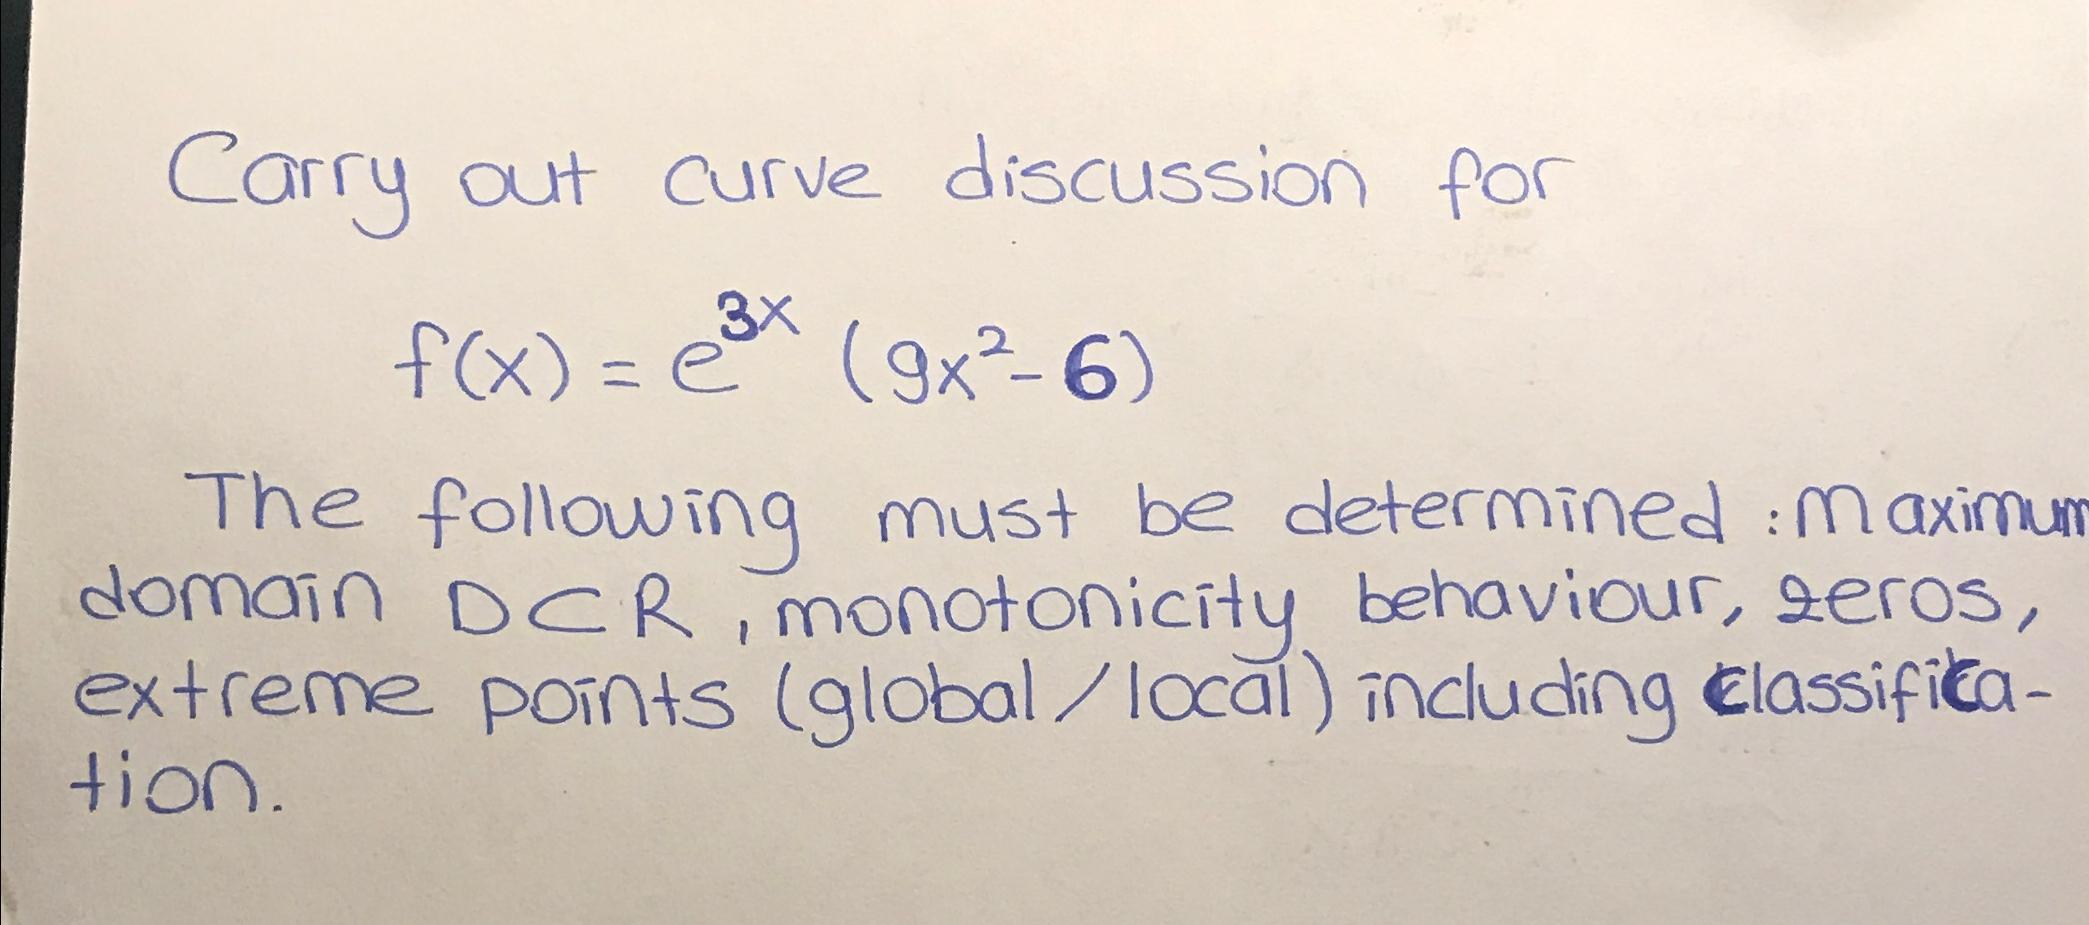 Carry out curve discussion for
f(x) = e^{3x} (9x² - 6)
The following must be determined : Maximum
domain D⊂R, monotonicity behaviour, zeros,
extreme points (global / local) including classifica-
tion.